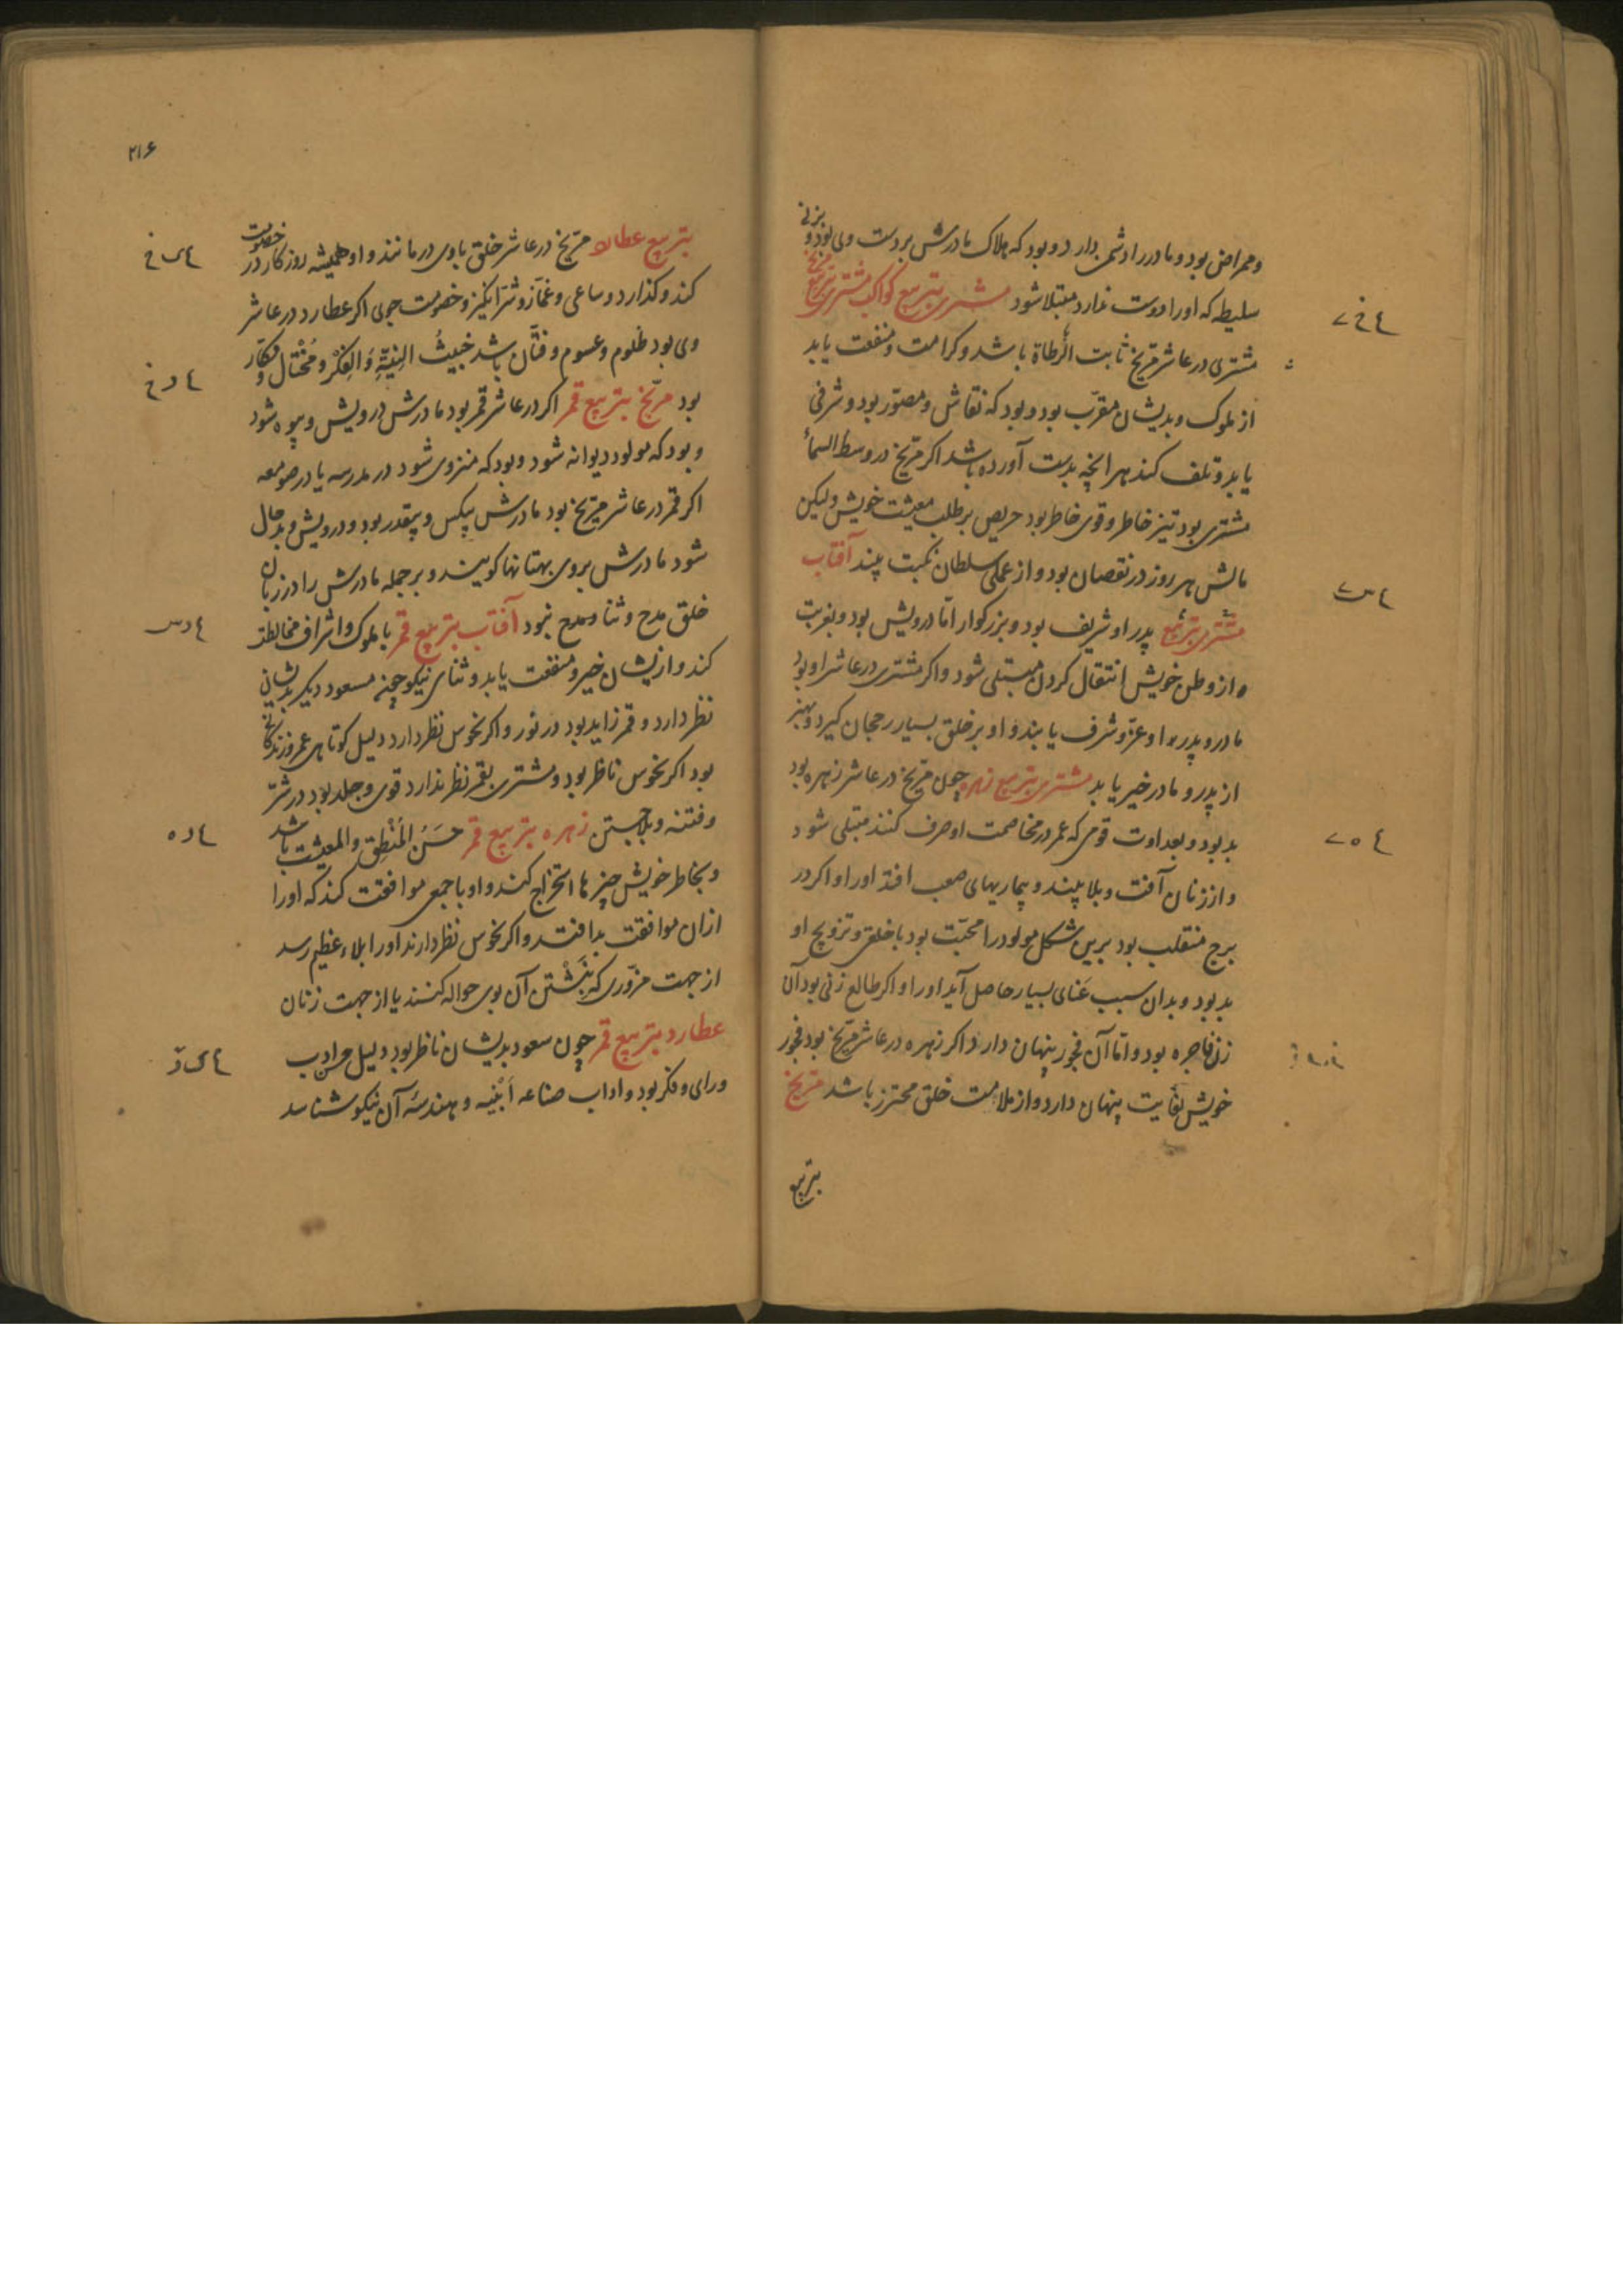 و ممراض بود و مادر را دشمن دارد و بود که هلاک مادرش بر دست وی بود و بزنی
سلیطه که او را دوست ندارد مبتلا شود مشتری بتربیع کواکب مشتری بتربیع مریخ
مشتری در عاشر مریخ ثابت باشد و کرامت و منفعت یابد
از ملوک و بدیشان مقرّب بود و بود که نقاش و مصوّر بود و شرفی
یابد و تلف کند هر انچه بدست آورده باشد اکر مریخ در وسط السماء
مشتری بود تیز خاطر و قوی خاطر بود حریص بر طلب معیشت خویش ولیکن
مالش هر روز در نقصان بود و از عمل سلطان نکبت بیند آفتاب
مشتری بتربیع پدر او شریف بود و بزرکوار امّا درویش بود و بغربت
و از وطن خویش انتقال کردن مبتلی شود و اکر مشتری در عاشر او بود
مادر و پدر او عزّ و شرف یابند و او بر خلق بسیار رجحان کیرد و نیز
از پدر و مادر خیر یابد مشتری بتربیع زهره چون مریخ در عاشر زهره بود
بد بود و بعداوت قومی که عمر در مخاصمت او صرف کنند مبتلی شود
و از زنان آفت و بلا بیند و بیماریهای صعب افتد او را و اکر در
برج منقلب بود برین شکل مولود را محبّت بود با خلق و تزویج او
بد بود و بدان سبب عنای بسیار حاصل آید او را و اکر طالع زنی بود آن
زن فاجره بود و امّا آن فجور پنهان دارد اکر زهره در عاشر مریخ بود فجور
خویش بغایت پنهان دارد و از ملامت خلق محترز باشد مریخ
بتربیع
۲۱۶
بتربیع عطارد مریخ در عاشر خلق با وی در مانند و او همیشه روزکار در خصومت
کند و کذارد و ساعی و غمّاز و شرّ انکیز و خصومت جوی اکر عطارد در عاشر
وی بود ظلوم و غسوم و فتّان باشد خبیث النیّة و الفکر و محتال و مکّار
بود مریخ بتربیع قمر اکر در عاشر قمر بود مادرش درویش و بیوه شود
و بود که مولود دیوانه شود و بود که منزوی شود در مدرسه یا در صومعه
اکر قمر در عاشر مریخ بود مادرش بیکس و بیقدر بود و درویش و بد حال
شود مادرش بر وی بهتانها کویند و بر جمله مادرش را در زبان
خلق مدح و ثنا نبود آفتاب بتربیع قمر با ملوک و اشراف مخالطت
کند و ازیشان خیر و منفعت یابد و ثنای نیکو چون مسعود دیکر بدیشان
نظر دارد و قمر زاید بود در نور و اکر نحوس نظر دارد دلیل کوتاهی عمر و زندکانی
بود اکر نحوس ناظر بود و مشتری بقمر نظر ندارد قوی و جلد بود در شرّ
و فتنه و بلا جستن زهره بتربیع قمر حسن المنطق و المعیشت باشد
و بخاطر خویش چیزها استخراج کند و او با جمعی موافقت کند که او را
ازان موافقت بد افتد و اکر نحوس نظر دارند او را بلاء عظیم رسد
از جهت مزوّری که نبشتن آن بوی حواله کنند یا از جهت زنان
عطارد بتربیع قمر چون سعود بدیشان ناظر بود دلیل ادب
و رای و فکر بود و اداب صناعه ابنیه و هندسهٔ آن نیکو شناسد